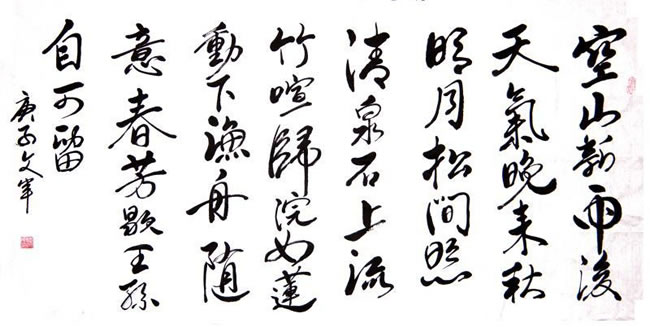 空山新雨後
天氣晚来秋
明月松間照
清泉石上流
竹喧歸浣女蓮
動下漁舟随
意春芳歇王孫
自可留
庚子文军